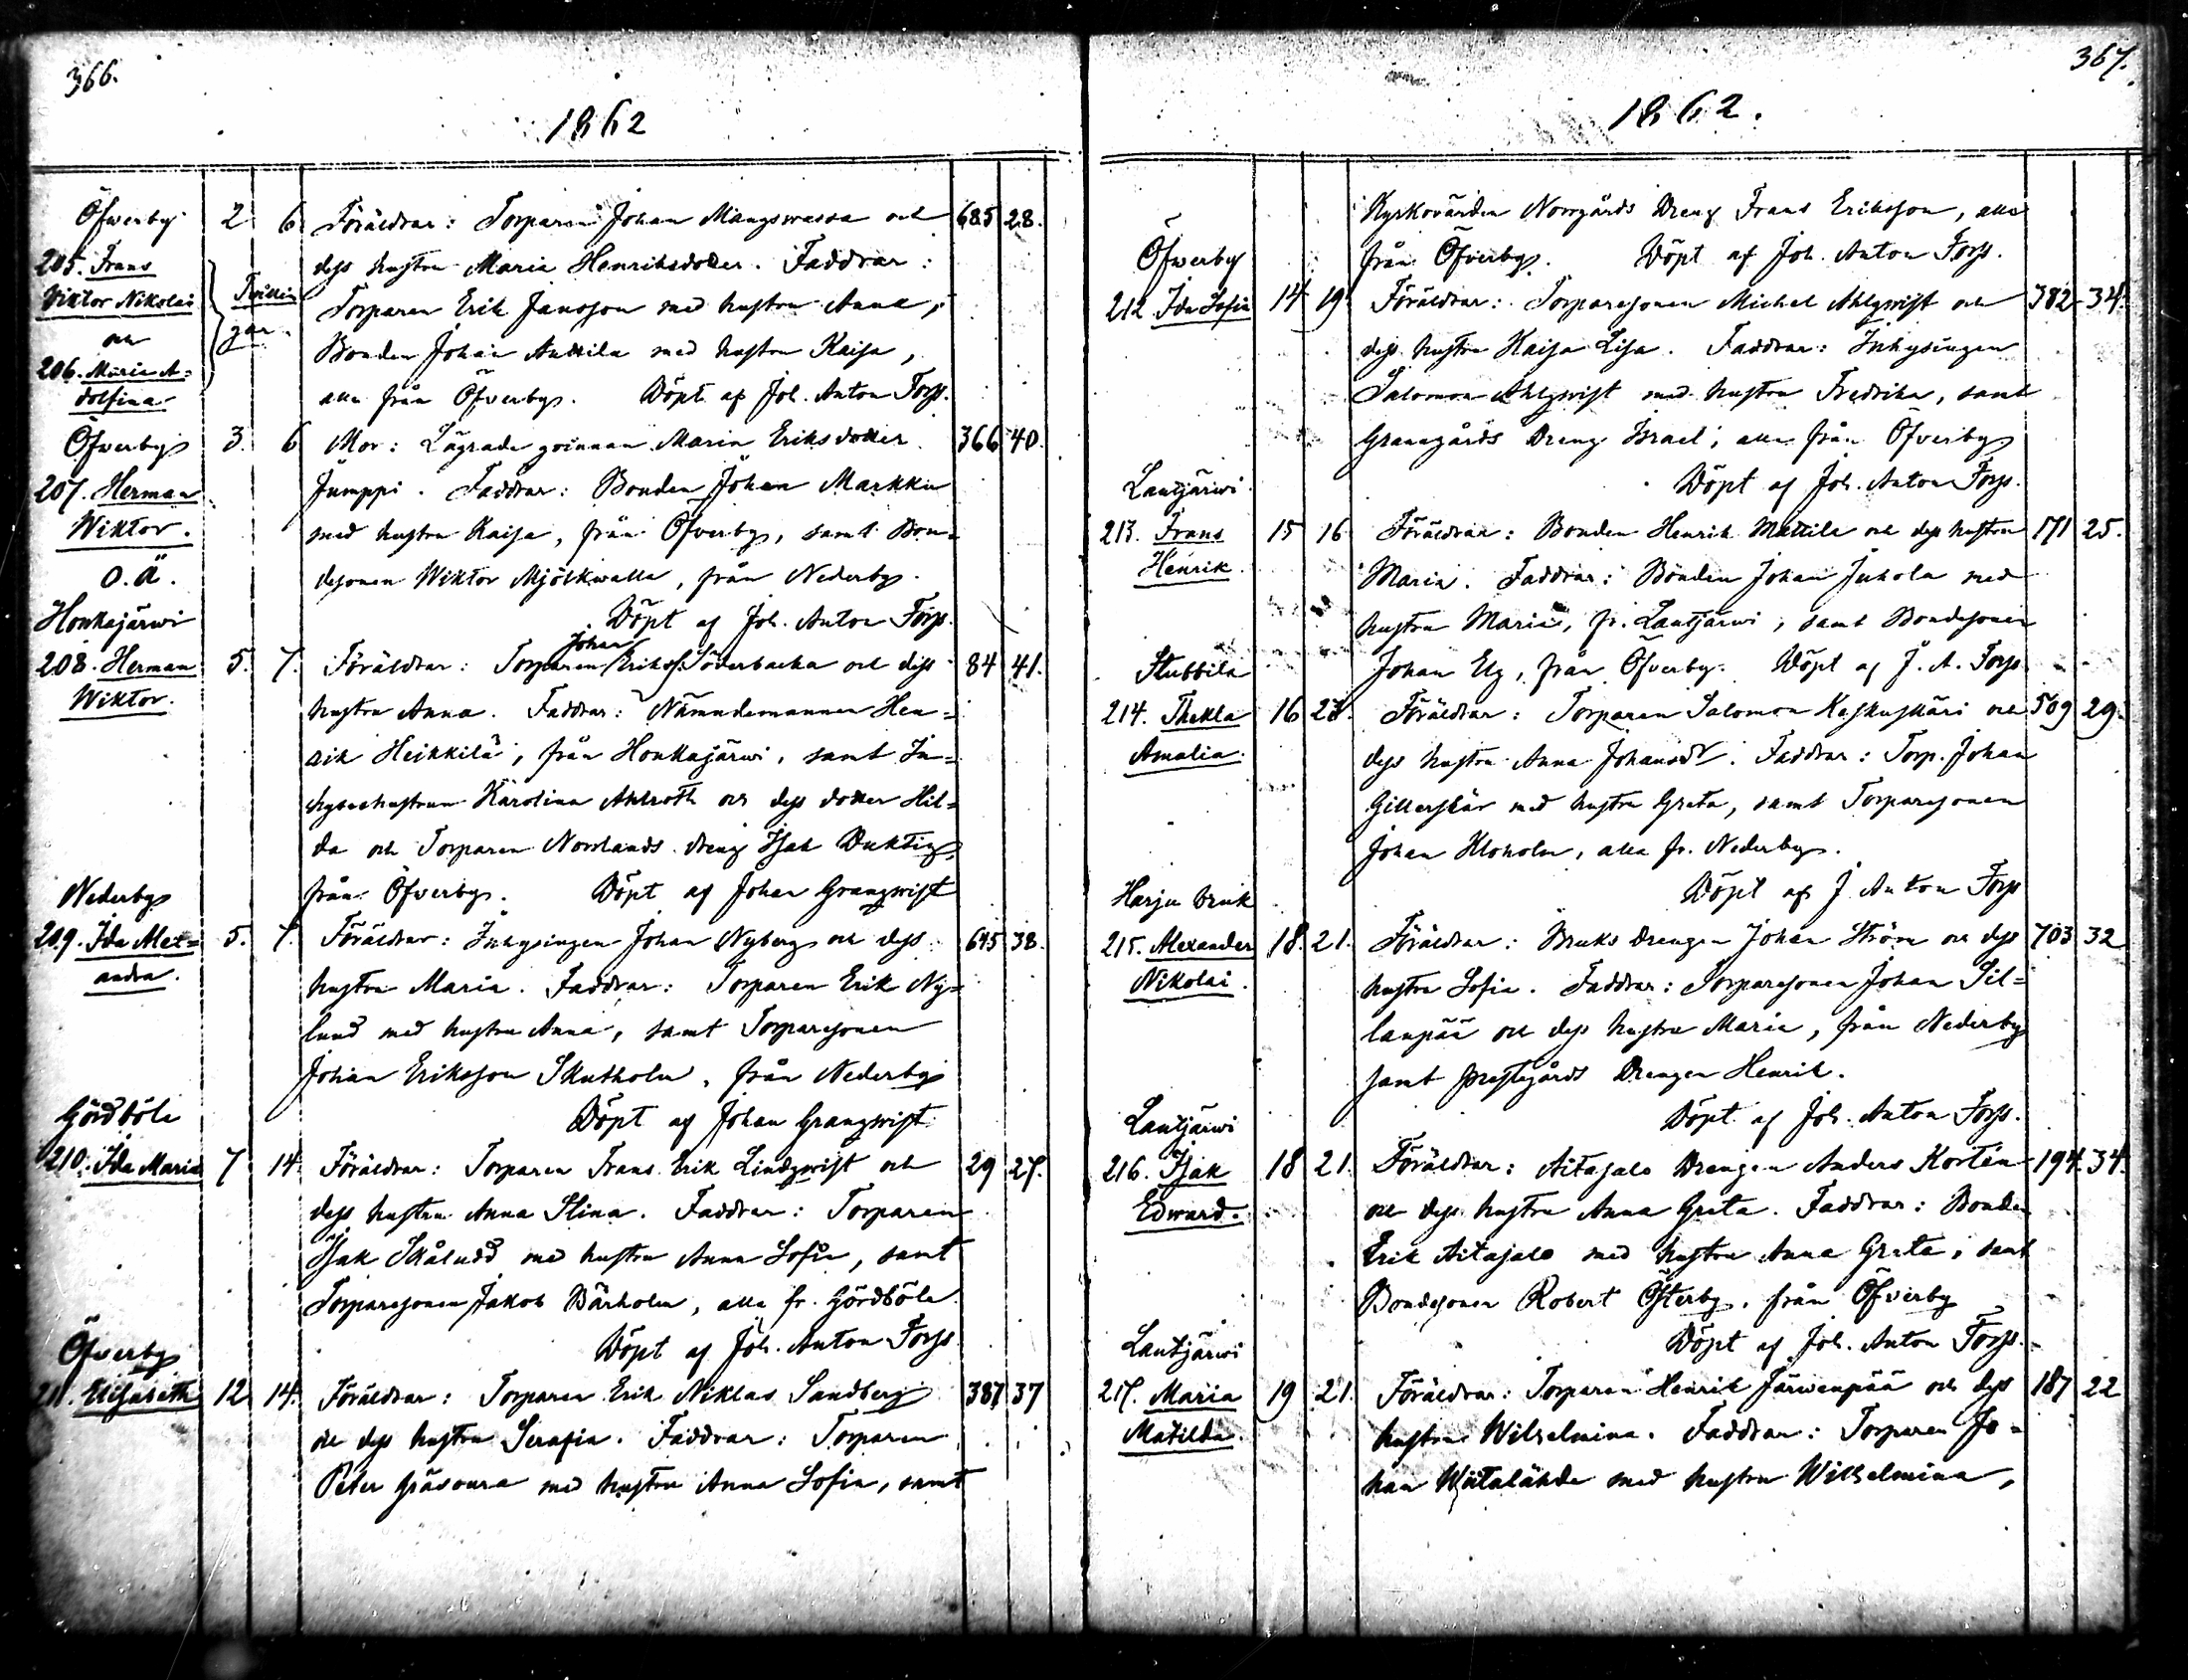 366.
1862
Öfverby 2 6 Föräldrar: Torparen Johan Mångsvassa och 685 28.
205. Frans dess hustru Maria Henriksdotter. Faddrar:
Viktor Nikolai Tvillin Torparen Erik Jansson med hustru Anna,
och gar. Bonden Johan Anttila med hustru Kaisa,
206. Maria A=
dolfina alla från Öfverby. Döpt af Joh. Anton Forss.
Öfverby 3. 6 Mor: Lägrade qvinnan Maria Eriksdotter 366 40.
207. Herman Jumppi. Faddrar: Bonden Johan Markku
Wiktor. med hustru Kaisa, från Öfverby, samt Bon=
O.Ä. desonen Wiktor Mjölkwalla, från Nederby.
Honkajärwi Döpt af Joh. Anton Forss.
208. Herman 5. 7. Föräldrar: Torparen Johan Erikss. Söderbacka och dess 84 41.
Wiktor. hustru Anna. Faddrar: Nämndemannen Hen=
rik Heikkilä, från Honkajärwi, samt In=
hyseshustrun Karolina Ahlroth och dess dotter Hil=
da och Torparen Norrlands dreng Isak Duktig,
Nederby från Öfverby. Döpt af Johan Granqwist
209. Ida Alex= 5. 7. Föräldrar: Inhysingen Johan Nyberg och dess 645 38.
andra. hustru Maria. Faddrar: Torparen Erik Ny=
lund med hustru Anna, samt Torparesonen
Johan Eriksson Skutholm, från Nederby
Gördböle Döpt af Johan Granqwist
210. Ida Maria 7 14. Föräldrar: Torparen Frans Erik Lindqwist och 29 27.
dess hustru Anna Stina. Faddrar: Torparen
Isak Skåludd med hustru Anna Sofia, samt
Torparesonen Jakob Bärholm, alla fr. Gördböle.
Öfverby Döpt af Joh. Anton Forss.
211. Elisabeth 12 14. Föräldrar: Torparen Erik Niklas Sandberg 387 37
och dess hustru Serafia. Faddrar: Torparen
Peter Gräsoura med hustru Anna Sofia, samt
367.
1862.
Kyrkovärden Norrgårds Dreng Frans Eriksson, alla
Öfwerby från Öfverby. Döpt af Joh. Anton Forss.
212. Ida Sofia 14 19 Föräldrar: Torparesonen Michel Ahlqwist och 382 34.
dess hustru Kaisa Lisa. Faddrar: Inhysingen
Salomon Ahlqwist med hustru Fredrika, samt
Granagårds Dreng Israel, alla från Öfverby
Lautjärwi Döpt af Joh. Anton Forss.
213. Frans 15 16 Föräldrar: Bonden Henrik Mattila och dess hustru 171 25.
Henrik. Maria. Faddrar: Bonden Johan Juhola med
hustru Maria, fr. Lautjärwi, samt Bondesonen
Stubbila Johan Elg, från Öfverby. Döpt af J. A. Forss
214. Thekla 16 Föräldrar: Torparen Salomon Kaskuskäri och 509 29.
Amalia. dess hustru Anna Johansdr. Faddrar: Torp. Johan
Gillerskär med hustru Greta, samt Torparesonen
Johan Kloholm, alla fr. Nederby.
Harju bruk Döpt af J. Anton Forss
215. Alexander 18. 21. Föräldrar: Bruks drengen Johan Ström och dess 703 32
Nikolai. hustru Sofia. Faddrar: Torparesonen Johan Sil=
lanpää och dess hustru Maria, från Nederby
samt prestgårds Drengen Henrik.
Lautjärwi Döpt af Joh. Anton Forss.
216. Isak 18 21. Föräldrar: Aitasalo Drengen Anders Kortén 194. 34.
Edward. och dess hustru Anna Greta. Faddrar: Bonden
Erik Aitasalo med hustru Anna Greta, samt
Bondesonen Robert Österby, från Öfverby
Lautjärwi Döpt af Joh. Anton Forss.
217. Maria 19 21. Föräldrar: Torparen Henrik Järwenpää och dess 187 22
Matilda. hustru Wilhelmina. Faddrar: Torparen Jo=
han Wiitalähde med hustru Wilhelmina,